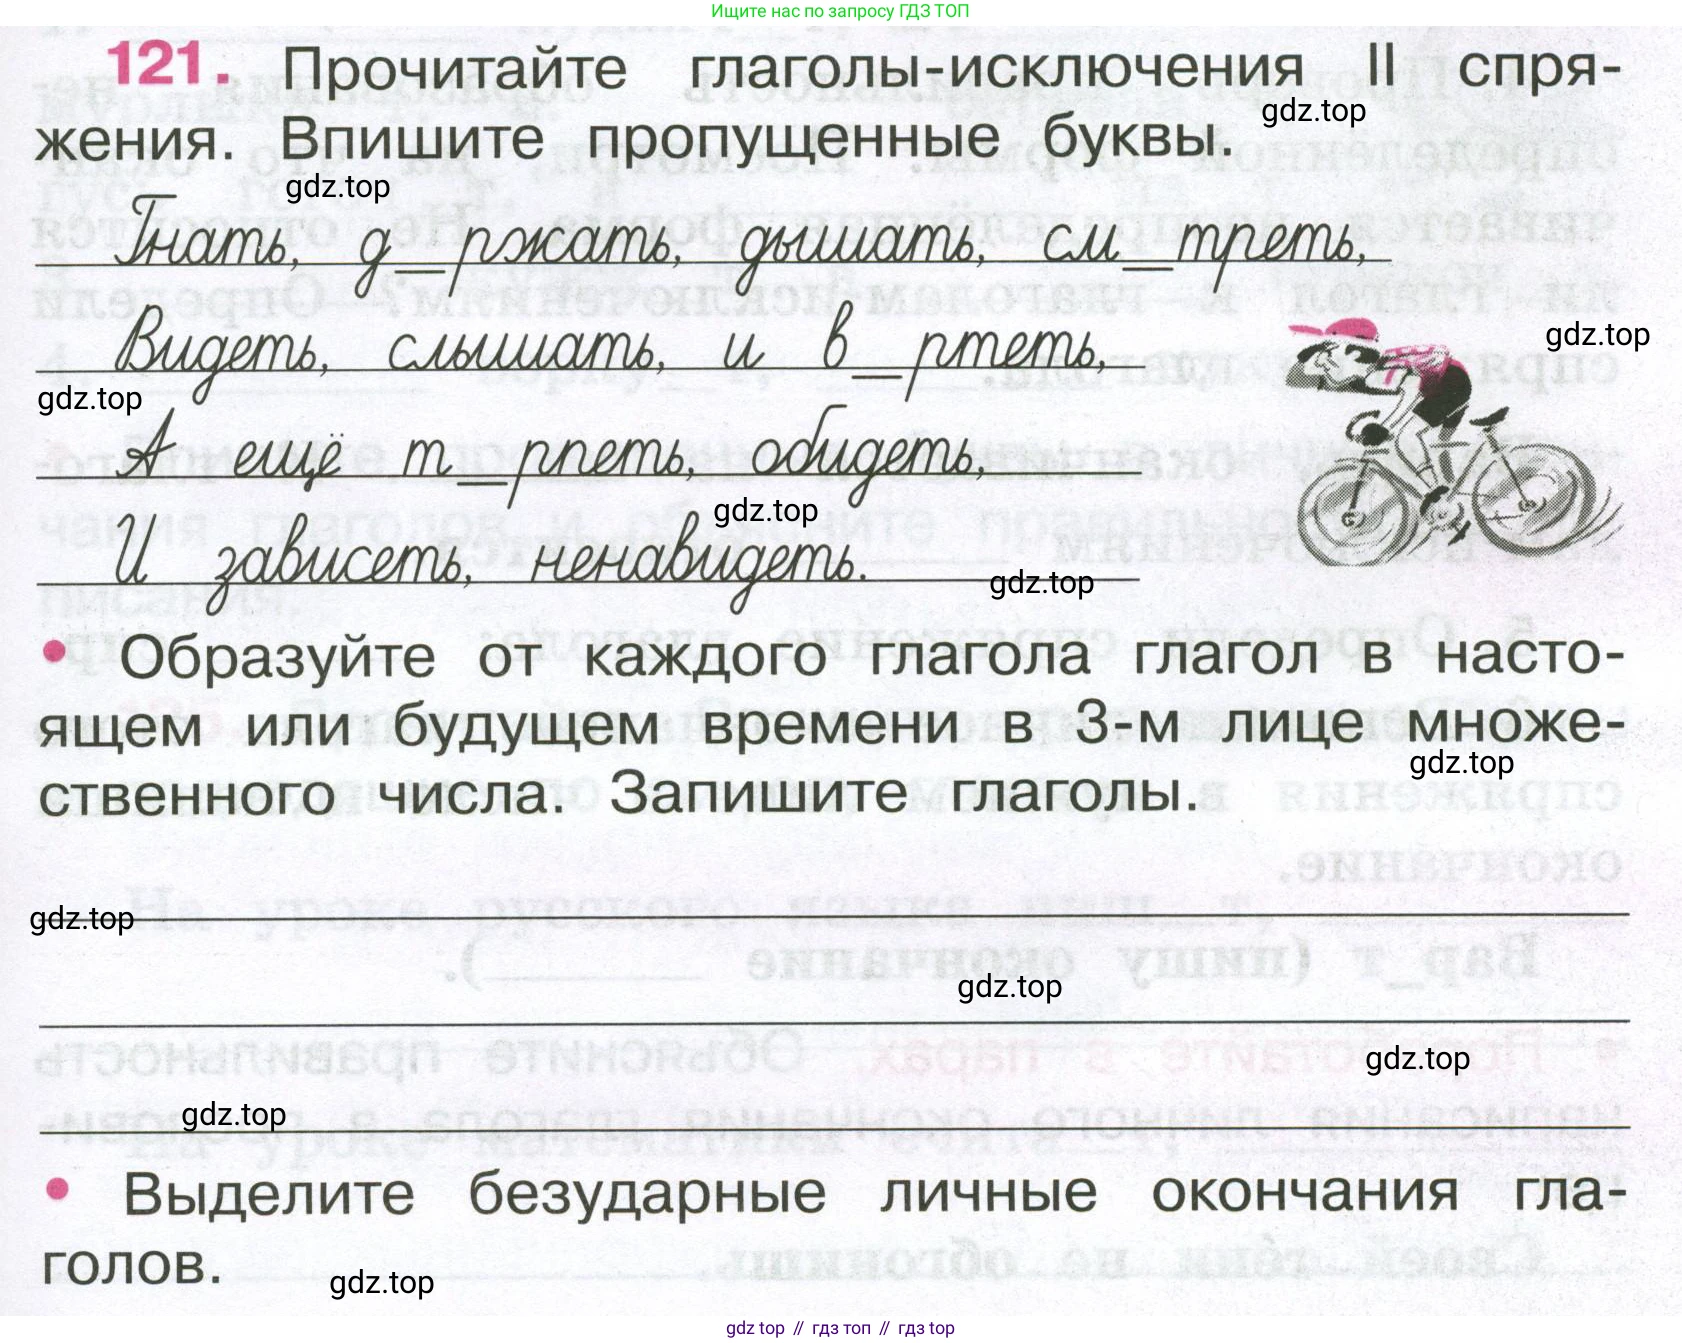 Ищите нас по запросу ГДЗ ТОП
121. Прочитайте глаголы-исключения II спря-
gdz.top
жения. Впишите пропущенные буквы.
gdz.top
Гнать, д_ржать, дышать, см_треть,
Видеть, слышать, и в_ртеть,
gdz.top
gdz.top
А ещё т_рпеть, обидеть,
gdz.top
И зависеть, ненавидеть.
gdz.top
• Образуйте от каждого глагола глагол в насто-
ящем или будущем времени в 3-м лице множе-
gdz.top
ственного числа. Запишите глаголы.
gdz.top
gdz.top
gdz.top
gdz.top
• Выделите безударные личные окончания гла-
голов.
gdz.top
gdz top // гдз топ // gdz top